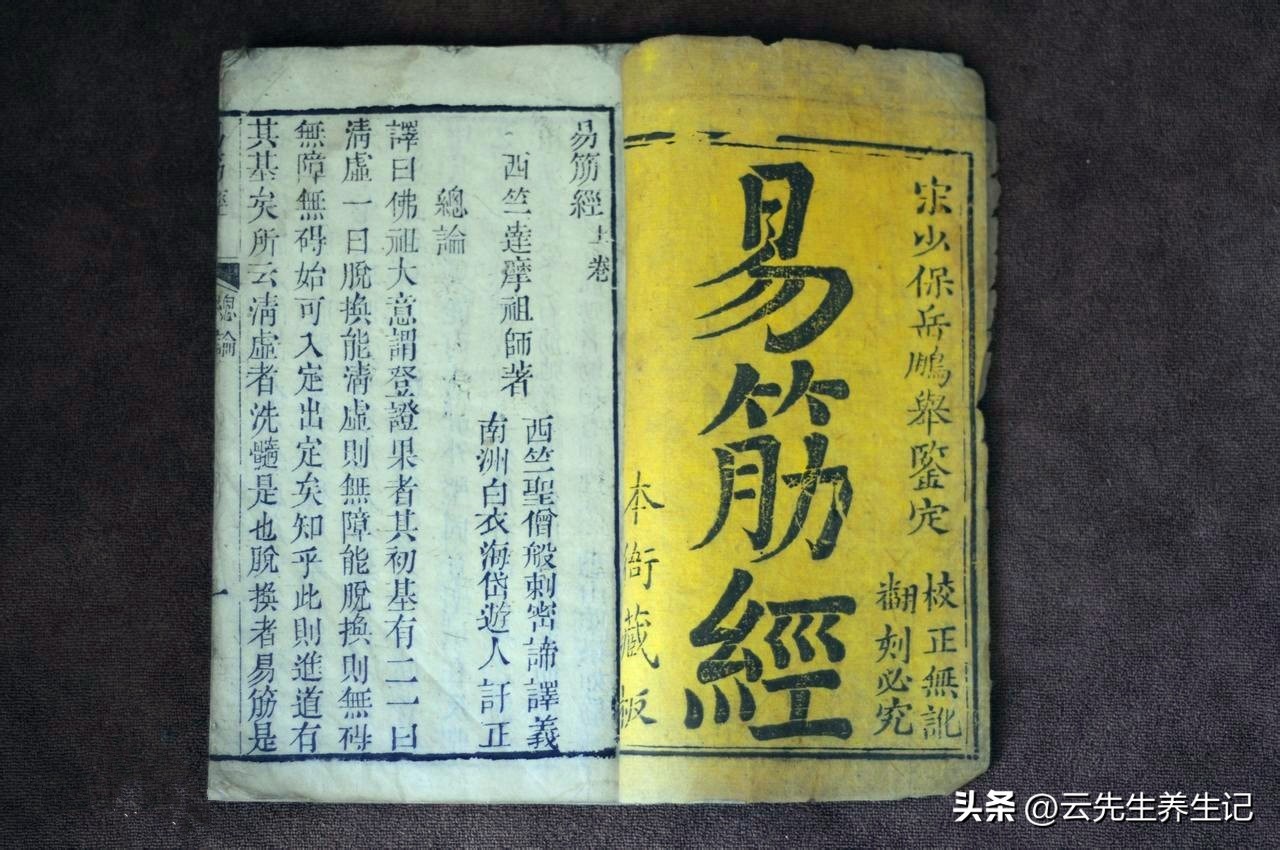 宋少保岳鵬舉鑒定
校正無訛
翻刻必究
易筋經
本衙藏板
易筋經上卷
西竺達摩祖師著
西竺聖僧般剌密諦譯義
南洲白衣海岱遊人訂正
總論
譯曰佛祖大意謂登證果者其初基有二一曰
淸虛一曰脫換能淸虛則無障能脫換則無碍
無障無碍始可入定出定矣知乎此則進道有
其基矣所云淸虛者洗髓是也脫換者易筋是
總論
一
头条 @云先生养生记